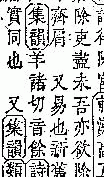 除吏盡未吾亦欲除
又易也新舊
集韻羊諸切音餘詩
實同也 又集韻